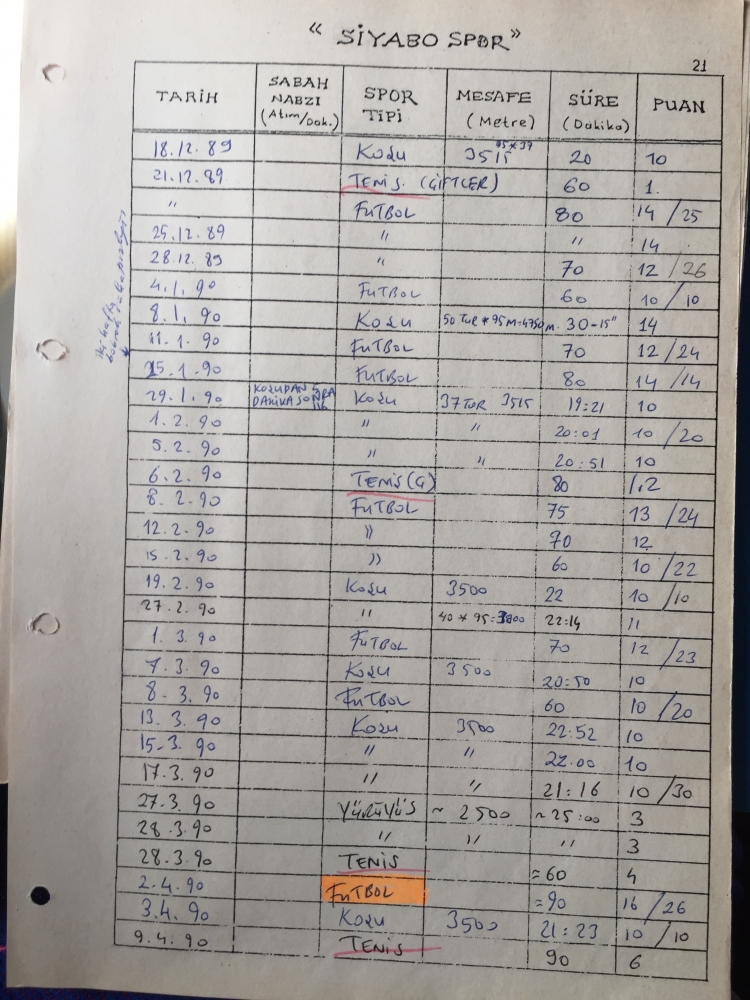 “ SİYABO SPOR ”
21
TARİH SABAH NABZI (Atım/Dak.) SPOR TİPİ MESAFE (Metre) SÜRE (Dakika) PUAN
18.12.89 KOŞU 3515 95*37 20 10
21.12.89 TENİS. (ÇİFTLER) 60 1.
" FUTBOL 80 14 /25
25.12.89 " " 14
28.12.89 " 70 12 /26
4.1.90 FUTBOL 60 10 /10
8.1.90 KOŞU 50 TUR * 95 M=4750 M. 30-15" 14
11.1.90 FUTBOL 70 12 /24
15.1.90 FUTBOL 80 14 /14
29.1.90 KOŞUDAN DAKİKA SONRA KOŞU 37 TUR 3515 19:21 10
1.2.90 " " 20:01 10 /20
5.2.90 " " 20:51 10
6.2.90 TENİS (Ç) 80 1,2
8.2.90 FUTBOL 75 13 /24
12.2.90 " 70 12
15.2.90 " 60 10 /22
19.2.90 KOŞU 3500 22 10 /10
27.2.90 " 40 * 95=3800 22:14 11
1.3.90 FUTBOL 70 12 /23
7.3.90 KOŞU 3500 20:50 10
8.3.90 FUTBOL 60 10 /20
13.3.90 KOŞU 3500 22:52 10
15.3.90 " " 22.00 10
17.3.90 " " 21:16 10 /30
27.3.90 YÜRÜYÜŞ ~ 2500 ~25:00 3
28.3.90 " " " 3
28.3.90 TENİS ≈60 4
2.4.90 FUTBOL ≈90 16 /26
3.4.90 KOŞU 3500 21:23 10 /10
9.4.90 TENİS 90 6